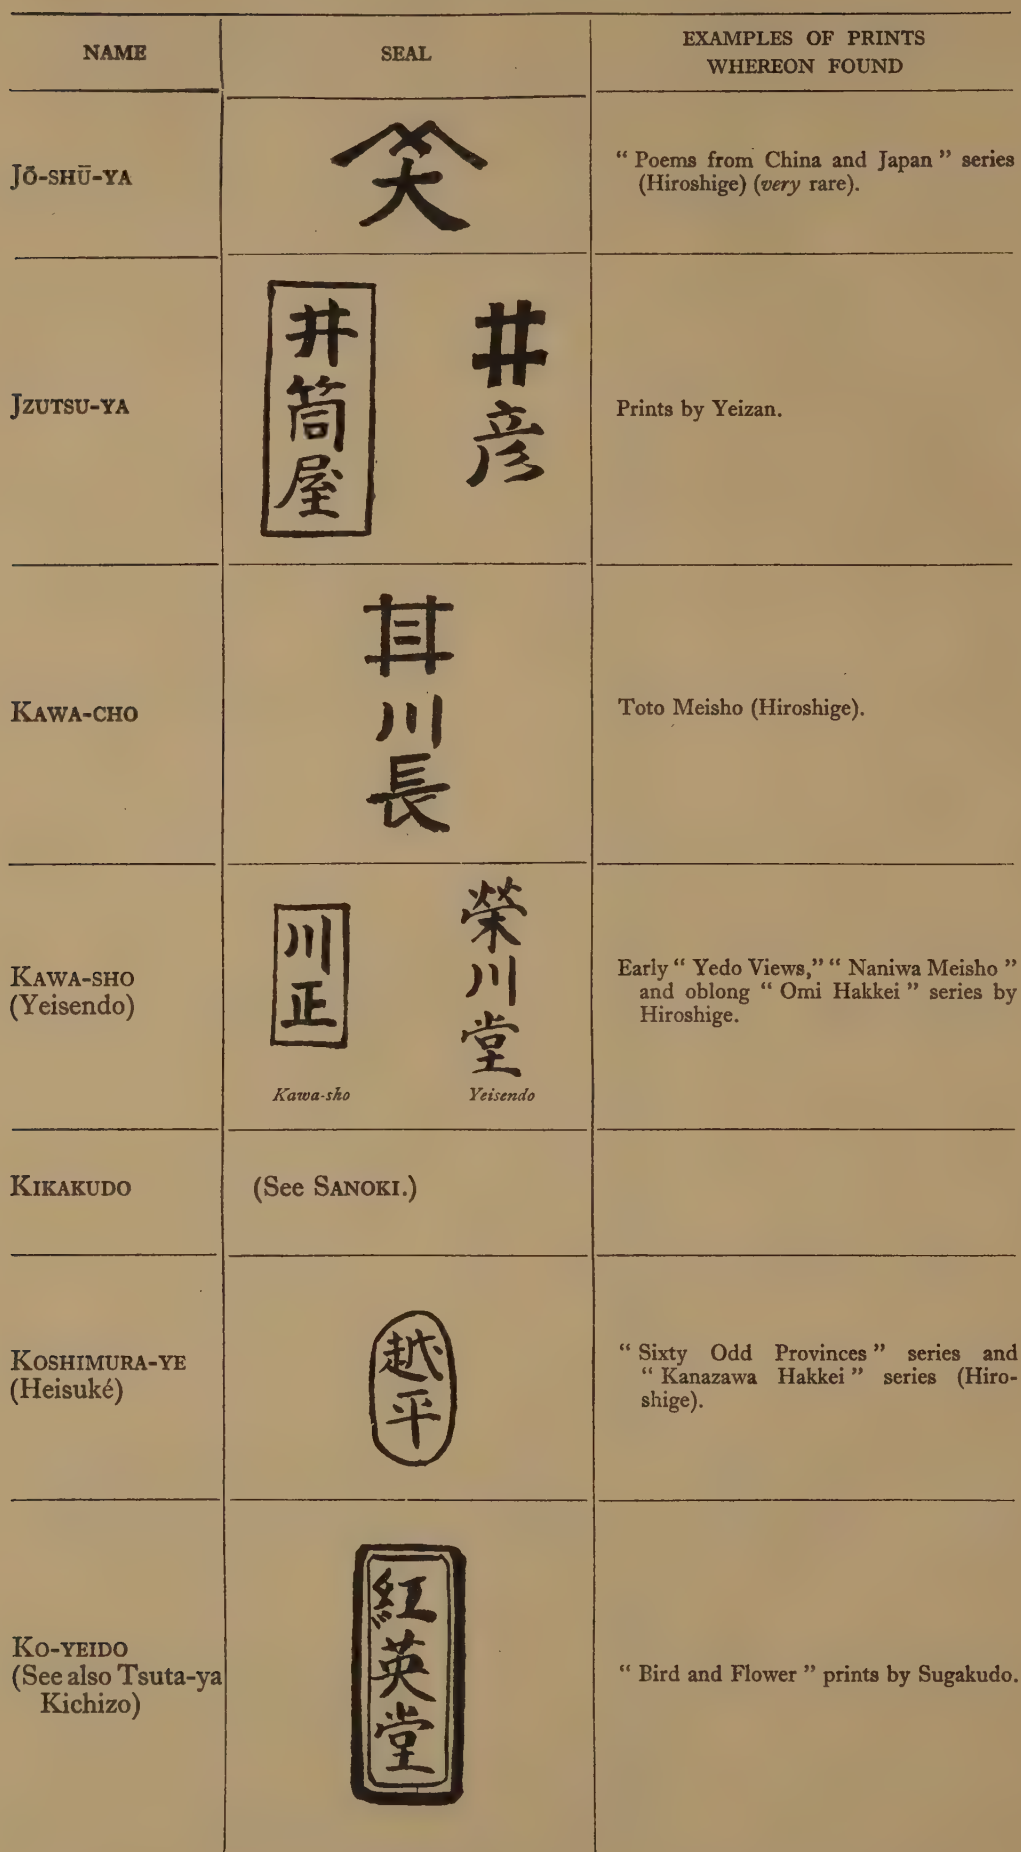 NAME
SEAL
EXAMPLES OF PRINTS
WHEREON FOUND
JŌ-SHŪ-YA
大
“ Poems from China and Japan ” series
(Hiroshige) (very rare).
JZUTSU-YA
井筒屋
井彦
Prints by Yeizan.
KAWA-CHO
川長
Toto Meisho (Hiroshige).
KAWA-SHO
(Yeisendo)
川正
Kawa-sho
榮川堂
Yeisendo
Early “ Yedo Views,” “ Naniwa Meisho ”
and oblong “ Omi Hakkei ” series by
Hiroshige.
KIKAKUDO
(See SANOKI.)
KOSHIMURA-YE
(Heisuké)
越平
“ Sixty Odd Provinces ” series and
“ Kanazawa Hakkei ” series (Hiro-
shige).
KO-YEIDO
(See also Tsuta-ya
Kichizo)
紅英堂
“ Bird and Flower ” prints by Sugakudo.